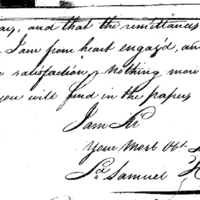 ay, and that the remittances
I am from heart engag'd, an
satisfaction, Nothing more
you will find in the papers
I am Sir
Your Most Obt
Samuel